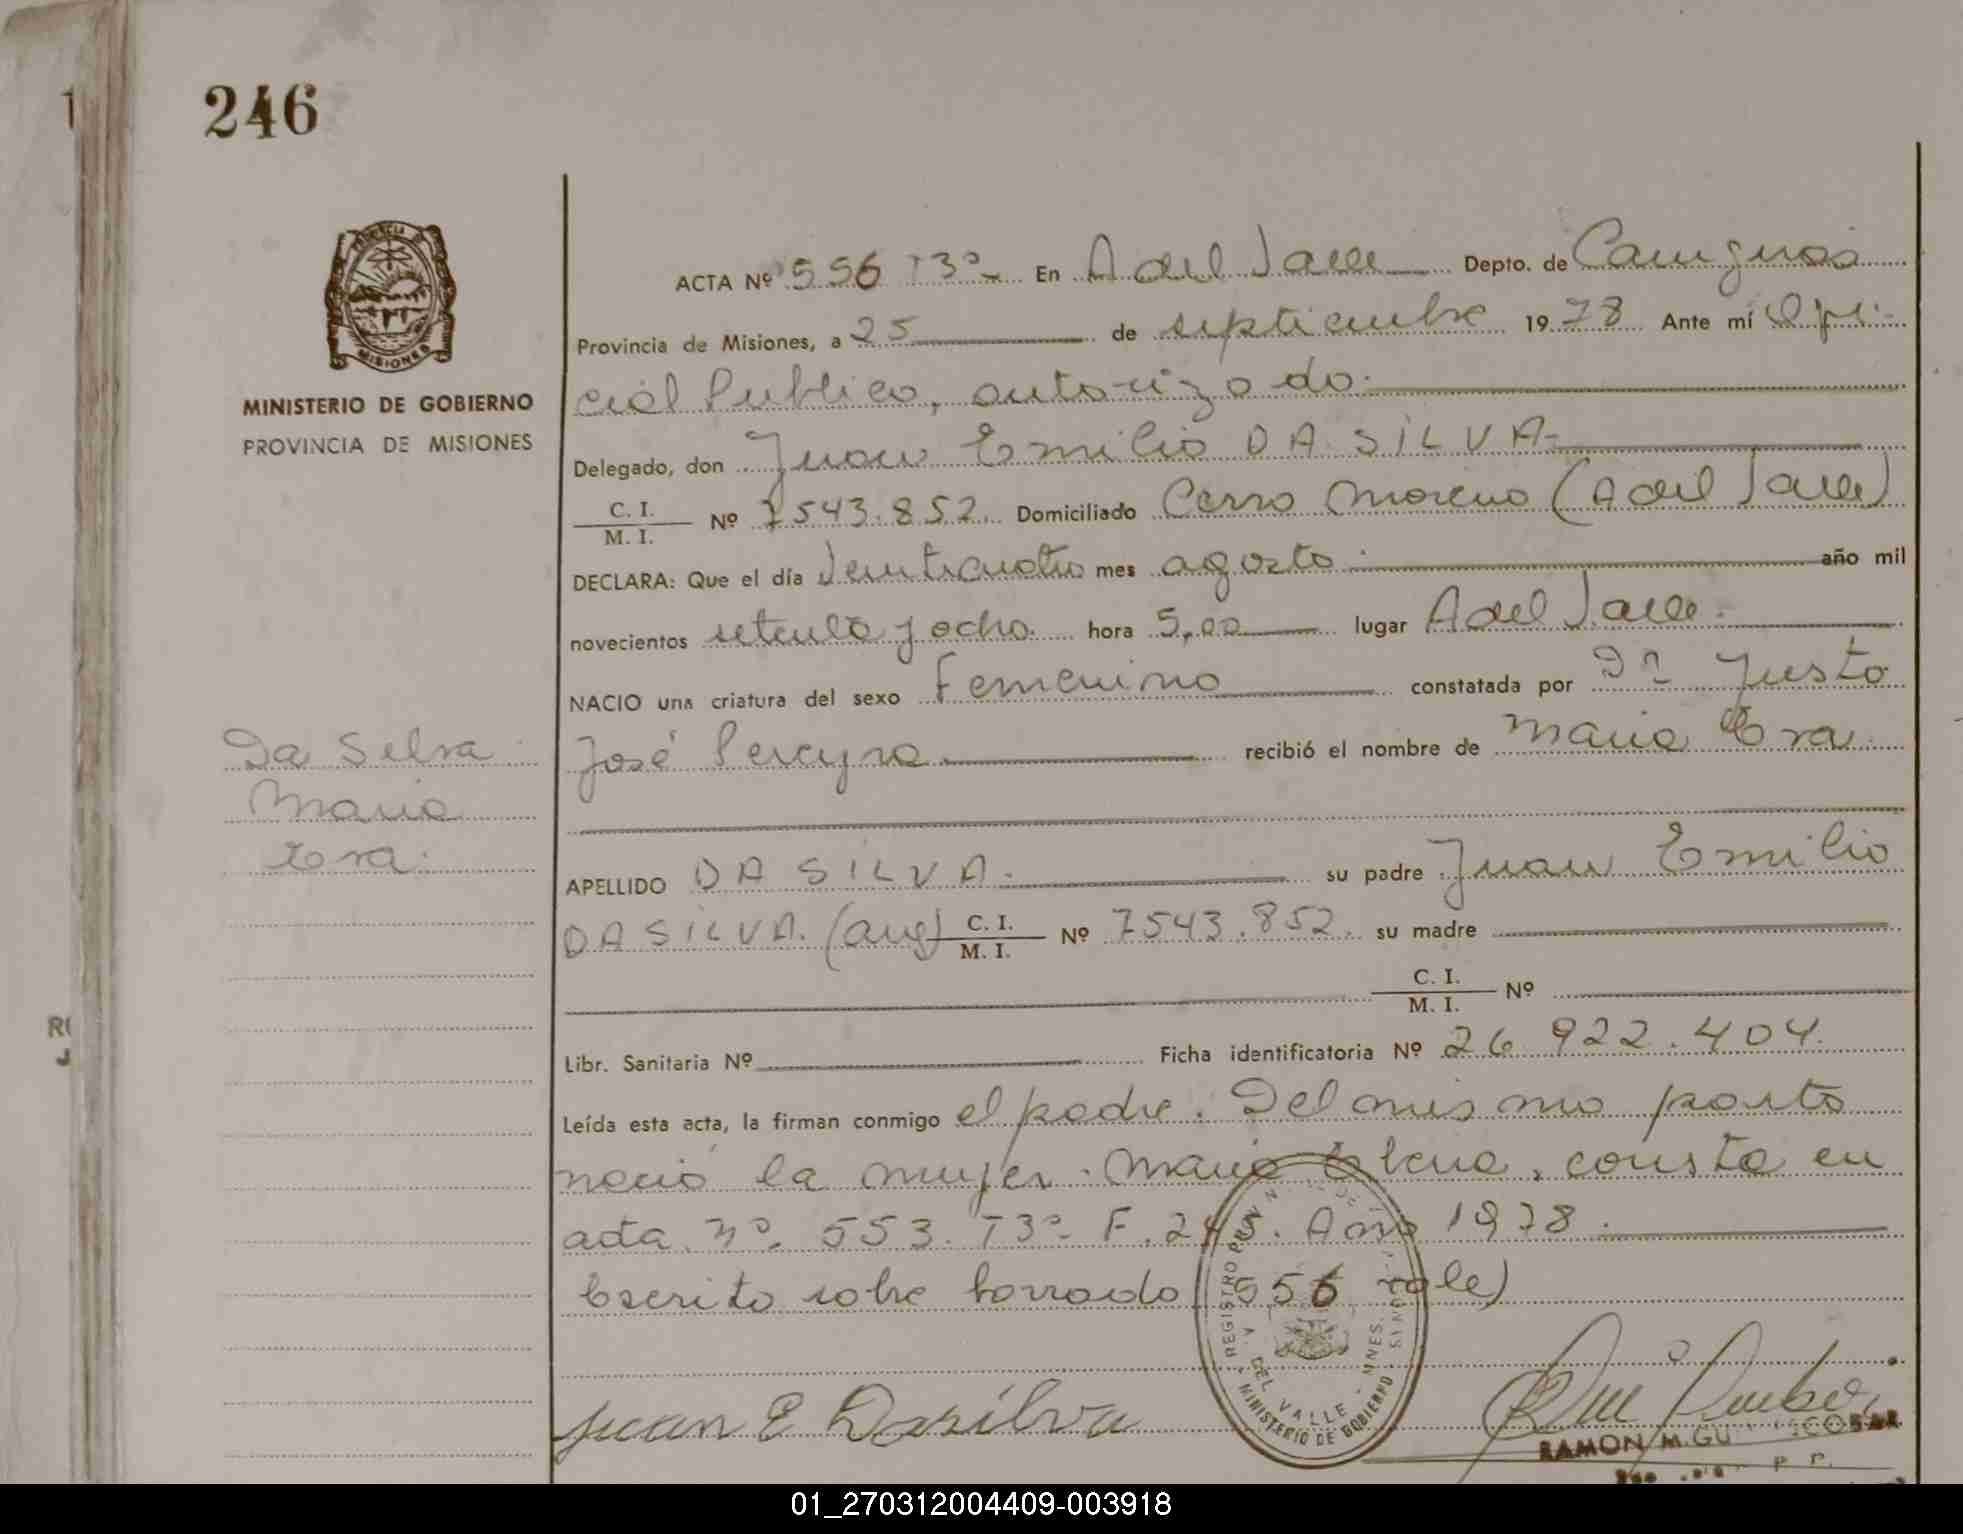 246
MINISTERIO DE GOBIERNO
PROVINCIA DE MISIONES
ACTA Nº 556 T3º En A del Valle Depto. de Cainguás
Provincia de Misiones, a 25 de septiembre 1978 Ante mí Ofi-
cial Publico, autorizado.
Delegado, don Juan Emilio DA SILVA-
C. I.
M. I. Nº 7543.852 Domiciliado Cerro Moreno (A del Valle)
DECLARA: Que el día Veinticuatro mes agosto año mil
novecientos setenta y ocho hora 5,00 lugar A del Valle.
NACIO una criatura del sexo Femenino constatada por Dn Justo
José Pereyra recibió el nombre de Maria Eva
APELLIDO DA SILVA. su padre Juan Emilio
DA SILVA. (arg) C. I.
M. I. Nº 7543.852. su madre
C. I.
M. I. Nº
Libr. Sanitaria Nº Ficha identificatoria Nº 26 922.404.
Leída esta acta, la firman conmigo el padre. Del mismo parto
nació la mujer Maria Elena, consta en
acta nº 553 T3º F. 245. Año 1978.
Escrito sobre borrado (556 vale)
Juan E Dasilva
Da Silva
Maria
Eva.
REGISTRO
A. DEL VALLE - MNES.
MINISTERIO DE GOBIERNO
RAMON M.
01_270312004409-003918